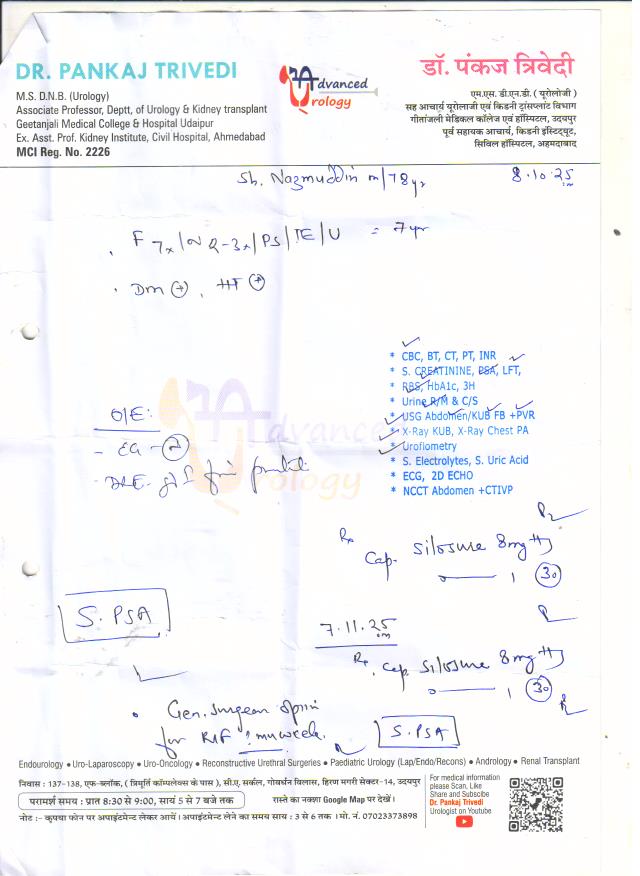 DR. PANKAJ TRIVEDI
M.S. D.N.B. (Urology)
Associate Professor, Deptt. of Urology & Kidney transplant
Geetanjali Medical College & Hospital Udaipur
Ex. Asst. Prof. Kidney Institute, Civil Hospital, Ahmedabad
MCI Reg. No. 2226
Advanced
Urology
डॉ. पंकज त्रिवेदी
एम.एस. डी.एन.डी. ( यूरोलोजी )
सह आचार्य यूरोलोजी एवं किडनी ट्रांसप्लांट विभाग
गीतांजली मेडिकल कॉलेज एवं हॉस्पिटल, उदयपुर
पूर्व सहायक आचार्य, किडनी इंस्टिट्यूट,
सिविल हॉस्पीटल, अहमदाबाद
Sh. Nazmuddin m/78yr
8.10.25
F 7x/N 2-3x/PS/IE/U = 7yr
DM +, HT +
* CBC, BT, CT, PT, INR
* S. CREATININE, PSA, LFT,
* RBS, HbA1c, 3H
* Urine R/M & C/S
* USG Abdomen/KUB FB +PVR
* X-Ray KUB, X-Ray Chest PA
* Urofiometry
* S. Electrolytes, S. Uric Acid
* ECG, 2D ECHO
* NCCT Abdomen +CTIVP
O/E:
- EG - N
- DRE-
Advanced
Urology
Rx Cap. Silosure 8mg
1 30
S. PSA
7.11.25
Rx Cap Silosure 8mg
1 30
Gen. Surgeon opini
for RIF
S. PSA
Endourology ● Uro-Laparoscopy ● Uro-Oncology ● Reconstructive Urethral Surgeries ● Paediatric Urology (Lap/Endo/Recons) ● Andrology ● Renal Transplant
निवास : 137-138, एफ-ब्लॉक, ( त्रिमूर्ति कॉम्पलेक्स के पास ), सी.ए. सर्कल, गोवर्धन विलास, हिरण मगरी सेक्टर-14, उदयपुर
परामर्श समय : प्रात 8:30 से 9:00, सायं 5 से 7 बजे तक
रास्ते का नक्शा Google Map पर देखें।
नोट :- कृपया फोन पर अपाइंटमेन्ट लेकर आयें। अपाइंटमेन्ट लेने का समय सायं : 3 से 6 तक । मो. नं. 07023373898
For medical information
please Scan, Like
Share and Subscibe
Dr. Pankaj Trivedi
Urologist on Youtube